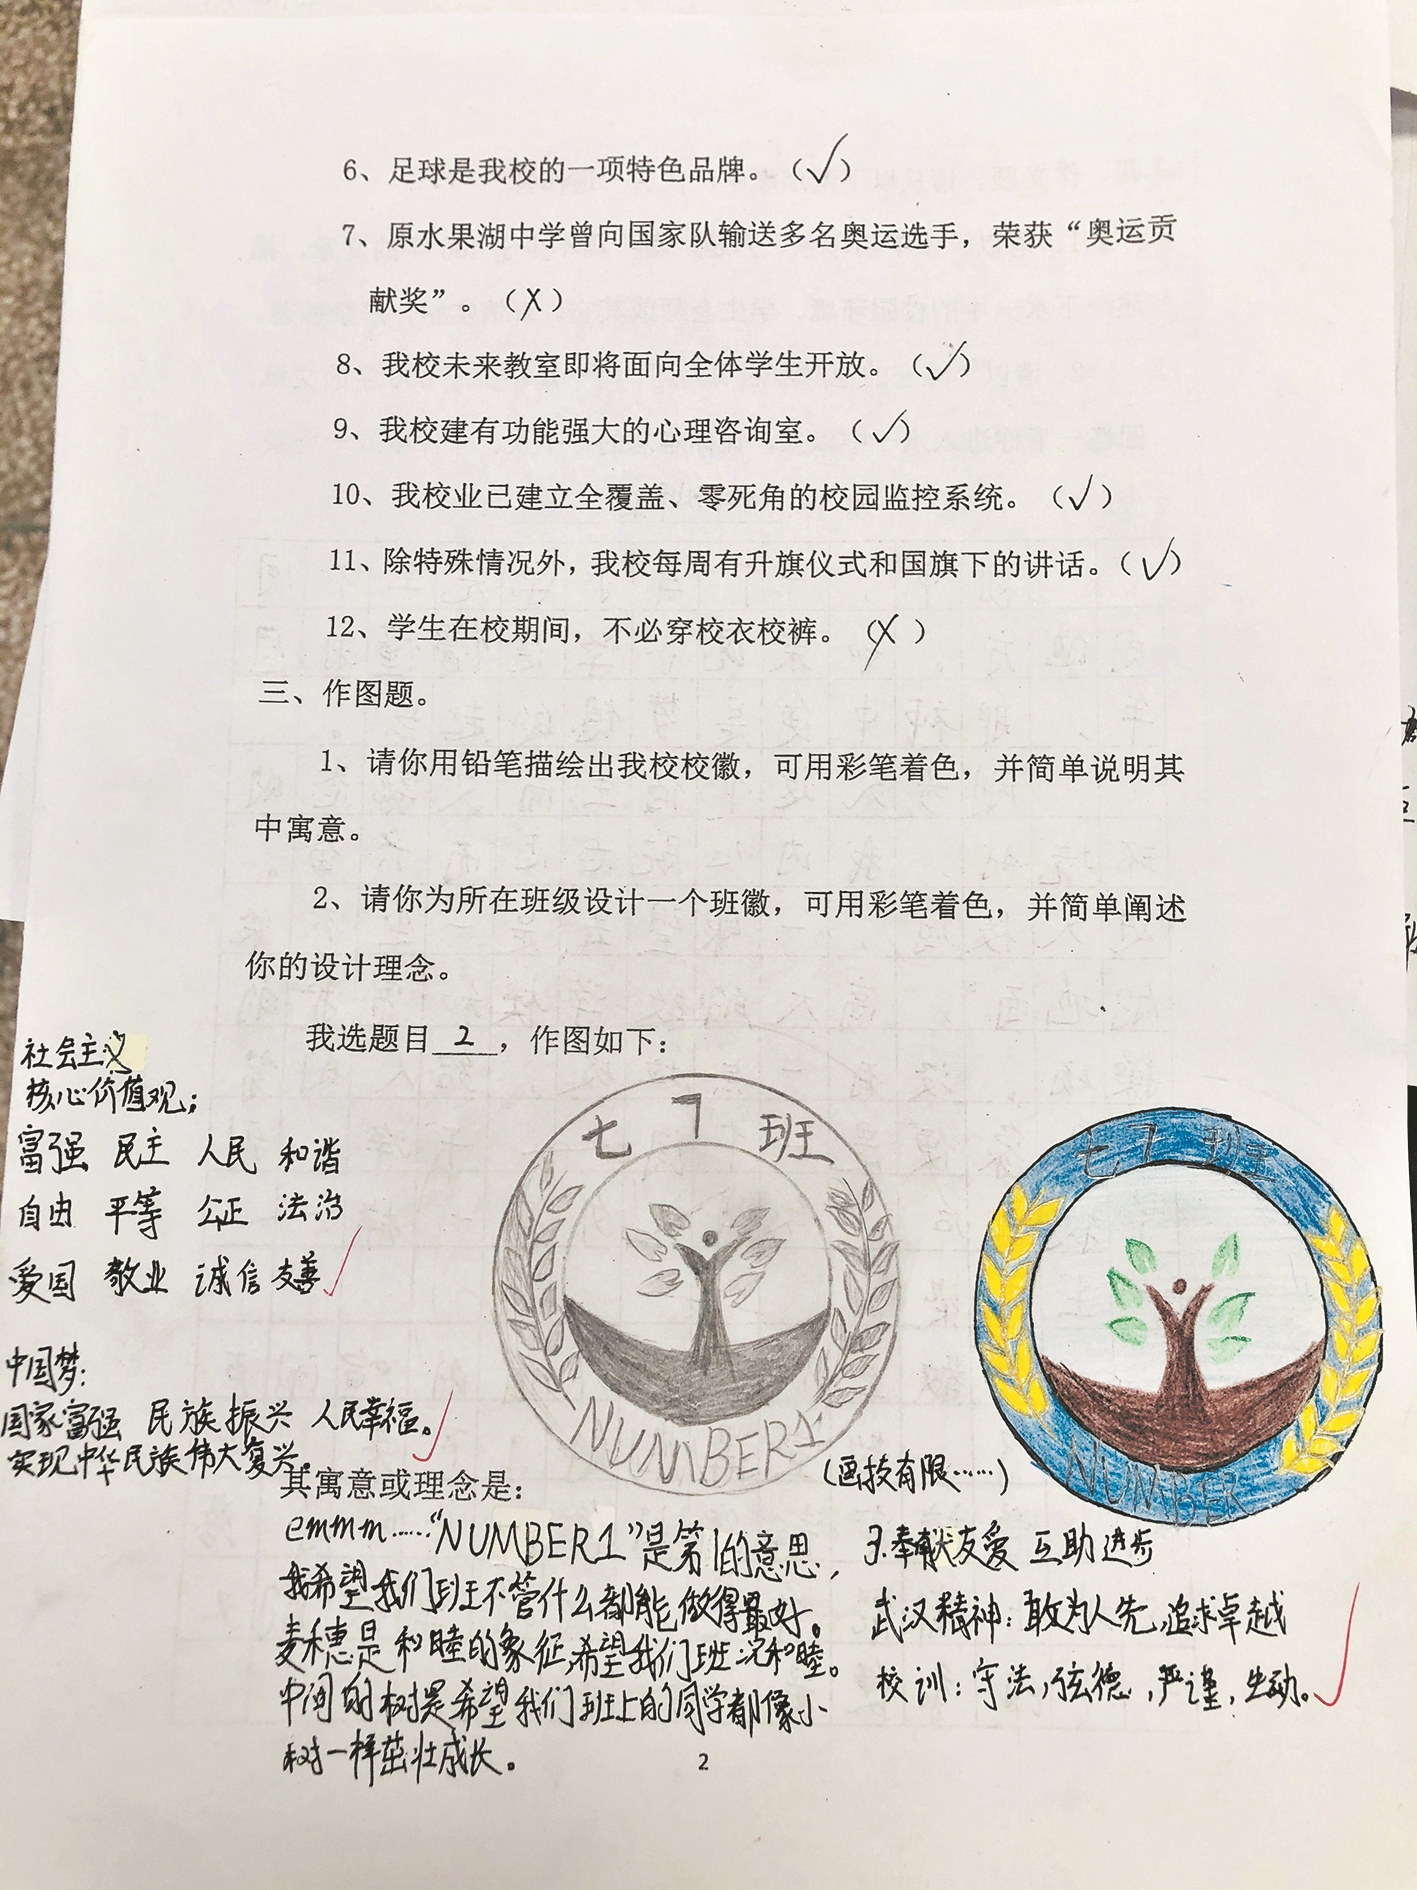 6、足球是我校的一项特色品牌。（✓）
7、原水果湖中学曾向国家队输送多名奥运选手，荣获“奥运贡
献奖”。（X）
8、我校未来教室即将面向全体学生开放。（✓）
9、我校建有功能强大的心理咨询室。（✓）
10、我校业已建立全覆盖、零死角的校园监控系统。（✓）
11、除特殊情况外，我校每周有升旗仪式和国旗下的讲话。（✓）
12、学生在校期间，不必穿校衣校裤。（X）
三、作图题。
1、请你用铅笔描绘出我校校徽，可用彩笔着色，并简单说明其
中寓意。
2、请你为所在班级设计一个班徽，可用彩笔着色，并简单阐述
你的设计理念。
我选题目 2 ，作图如下：
社会主义
核心价值观；
富强 民主 人民 和谐
自由 平等 公正 法治
爱国 敬业 诚信 友善
中国梦：
国家富强 民族振兴 人民幸福。
实现中华民族伟大复兴。
七 7 班
NUMBER1
七 7 班
NUMBER
（画技有限……）
其寓意或理念是：
emmm……“NUMBER1”是第1的意思，
我希望我们班不管什么都能做得最好。
麦穗是和睦的象征,希望我们班 和睦。
中间的树是希望我们班上的同学都像小
树一样茁壮成长。
3.奉献友爱 互助进步
武汉精神：敢为人先,追求卓越
校训：守法,弘德,严谨,生动。
2